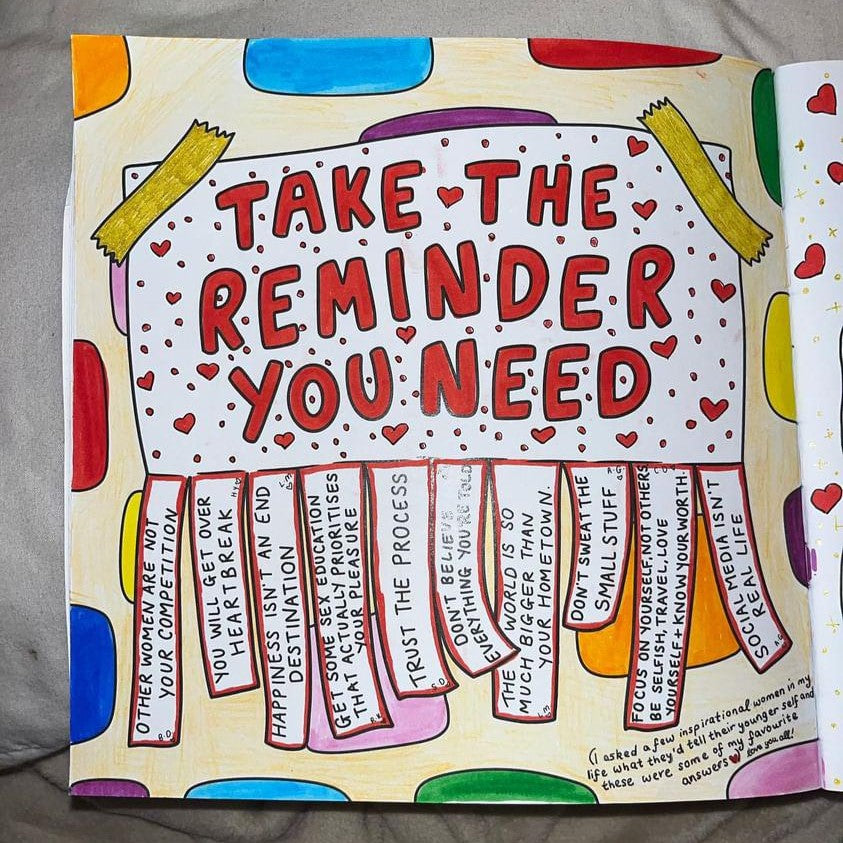 TAKE THE
REMINDER
YOU NEED
OTHER WOMEN ARE NOT
YOUR COMPETITION
R.O
YOU WILL GET OVER
HEARTBREAK
HAPPINESS ISN'T AN END
DESTINATION
L.M
GET SOME SEX EDUCATION
THAT ACTUALLY PRIORITISES
YOUR PLEASURE
TRUST THE PROCESS
R.O
DON'T BELIEVE
EVERYTHING YOU'RE TOLD
THE WORLD IS SO
MUCH BIGGER THAN
YOUR HOMETOWN.
L.M
DON'T SWEAT THE
SMALL STUFF
A.G
FOCUS ON YOURSELF, NOT OTHERS
BE SELFISH, TRAVEL, LOVE
YOURSELF + KNOW YOUR WORTH!
SOCIAL MEDIA ISN'T
REAL LIFE
A.G
(I asked a few inspirational women in my
life what they'd tell their younger self and
these were some of my favourite
answers love you all!